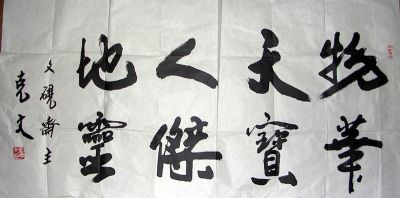 物华
天寶
人傑
地靈
文砚齋主
克文